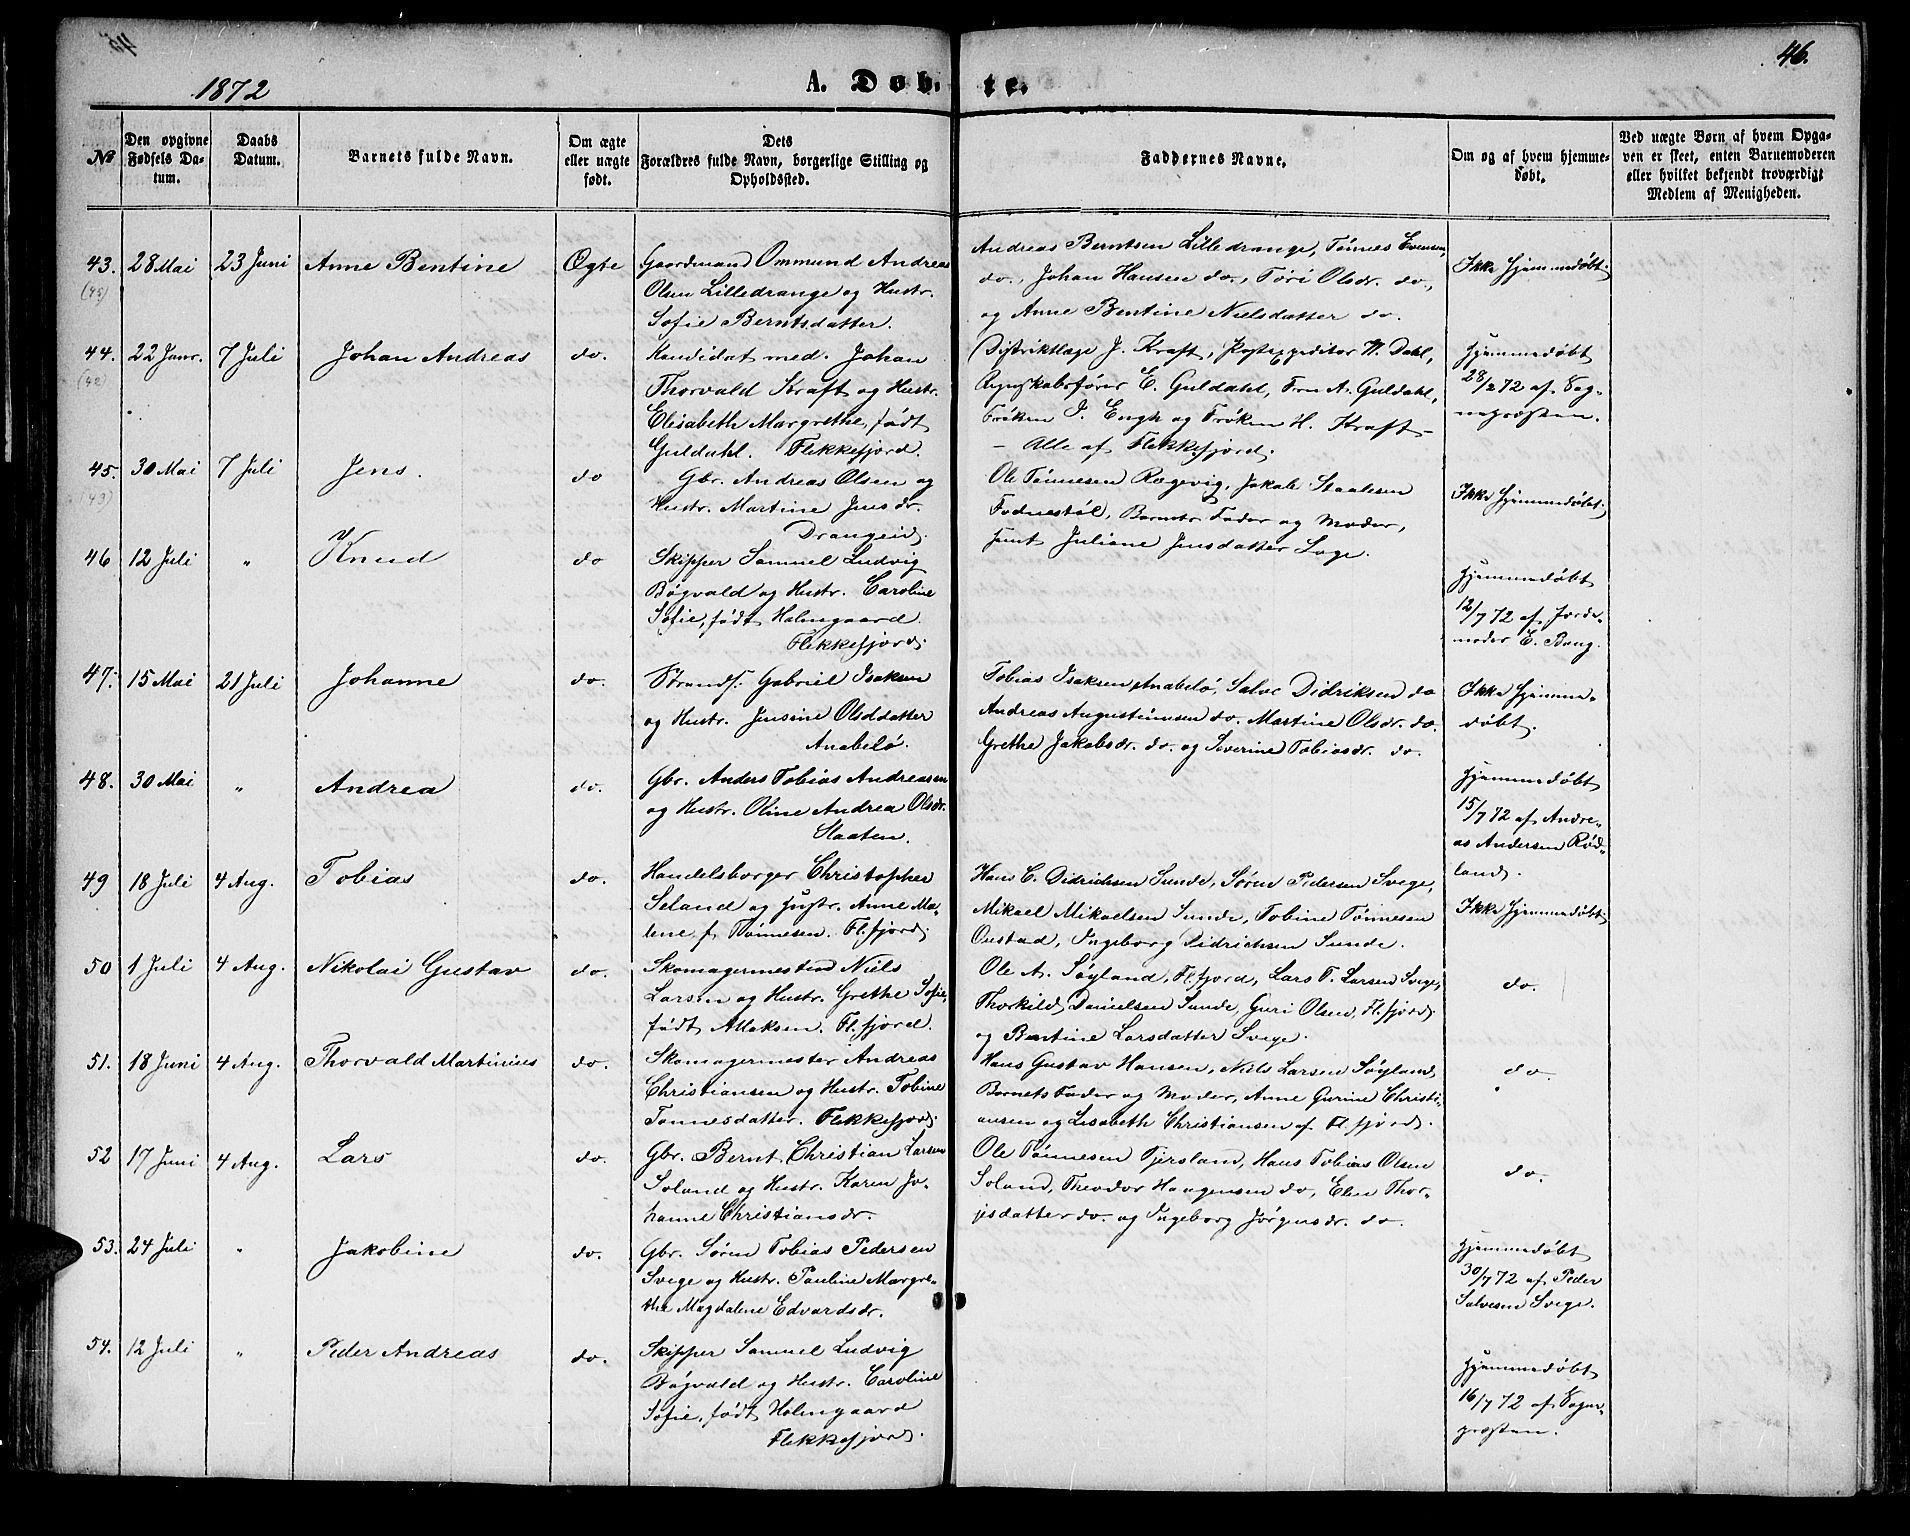 45.
46.
1872
A. Døb. te.
№
Den opgivne Fødsels Datum.
Daabs Datum.
Barnets fulde Navn.
Om ægte eller uægte født.
Dets Forældres fulde Navn, borgerlige Stilling og Opholdssted.
Faddernes Navne.
Om og af hvem hjemmedøbt.
Ved uægte Børn af hvem Opgaven er skeet, enten Barnemoderen eller hvilket bekjendt troværdigt Medlem af Menigheden.
43. 28 Mai 23 Juni Anne Bentine Ægte Gaardmand Ommund Andreas
(45)
Olsen Lilledrange og Hustr.
Sofie Berntsdatter.
Andreas Berntsen Lilledrange, Tønnes Evensen
do., Johan Hansen do., Tóri Olsdr. do.,
og Anne Bentine Nielsdatter do.
Ikke hjemmedøbt.
44. 22 Janr. 7 Juli Johan Andreas do. Kandidat med. Johan
(42)
Thorvald Kraft og Hustr.
Elisabeth Margrethe, født
Guldahl. Flekkefjord.
Distriktlæge J. Kraft, Postexpeditør W. Dahl,
Regnskabsfører E. Guldahl, Fru A. Guldahl,
Frøken J. Engh og Frøken H. Kraft –
– Alle af Flekkefjord.
Hjemmedøbt
28/2 72 af Sog-
nepræsten.
45. 30 Mai 7 Juli Jens. do Gbr. Andreas Olsen og
(43)
Hustr. Martine Jensdr.
Drangeid.
Ole Tønnesen Rægevig, Jakob Staalesen
Fodnestøl, Barnets Fader og Moder,
samt Juliane Jensdatter Svege.
Ikke hjemmedøbt.
46 12 Juli " Knud do Skipper Samuel Ludvig
Bøgvald og Hustr. Caroline
Sofie, født Holmgaard.
Flekkefjord.
Hjemmedøbt
12/7 72 af Jorde-
moder E. Bang.
47. 15 Mai 21 Juli Johanne do. Strands. Gabriel Isaksen
og Hustr. Jensine Olsddatter
Anabelø.
Tobias Isaksen Anabelø, Salve Didriksen do
Andreas Augustinusen do. Martine Olsdr. do.
Grethe Jakobsdr. do. og Severine Tobiasdr. do.
Ikke hjemme-
døbt.
48. 30 Mai " Andrea do. Gbr. Anders Tobias Andreasen
og Hustr. Oline Andrea Olsdr.
Staaten.
Hjemmedøbt
15/7 72 af Andre-
as Andersen Rød-
land.
49 18 Juli 4 Aug. Tobias do. Handelsborger Christopher
Seland og Hustr. Anne Ma-
lene f. Tønnesen. Fl.fjord.
Hans C. Didrichsen Sunde, Søren Pedersen Svege,
Mikael Mikaelsen Sunde, Tobine Tønnesen
Oustad, Ingeborg Didrichsen Sunde.
Ikke hjemmedøbt.
50 1 Juli 4 Aug. Nikolai Gustav do. Skomagermester Niels
Larsen og Hustr. Grethe Sofie,
født Allaksen. Fl.fjord.
Ole A. Søyland, Fl.fjord, Lars T. Larsen Svege,
Thorkild Danielsen Sunde, Guri Olsen, Fl.fjord.
og Bentine Larsdatter Svege.
do.
51. 18 Juni 4 Aug. Thorvald Martinius do. Skomagermester Andreas
Christiansen og Hustr. Tobine
Tønnesdatter. Flekkefjord.
Hans Gustav Hansen, Nils Larsen Søyland,
Barnets Fader og Moder, Anne Gurine Christi-
ansen og Lisabeth Christiansen af Fl.fjord.
do.
52 17 Juni 4 Aug. Lars do. Gbr. Bernt Christian Larsen
Soland og Hustr. Karen Jo-
hanne Christiansdr.
Ole Tønnesen Tjersland, Hans Tobias Olsen
Soland, Theodor Haagensen do, Elen Thor-
jsdatter do. og Ingeborg Jørgensdr. do.
do.
53. 24 Juli " Jakobine do. Gbr. Søren Tobias Pedersen
Svege og Hustr. Pauline Margre-
the Magdalene Edvardsdr.
Hjemmedøbt
30/7 72 af Peder
Salvesen Svege.
54. 12 Juli " Peder Andreas do. Skipper Samuel Ludvig
Bøgvald og Hustr. Caroline
Sofie, født Holmgaard
Flekkefjord.
Hjemmedøbt
16/7 72 af Sogne-
præsten.